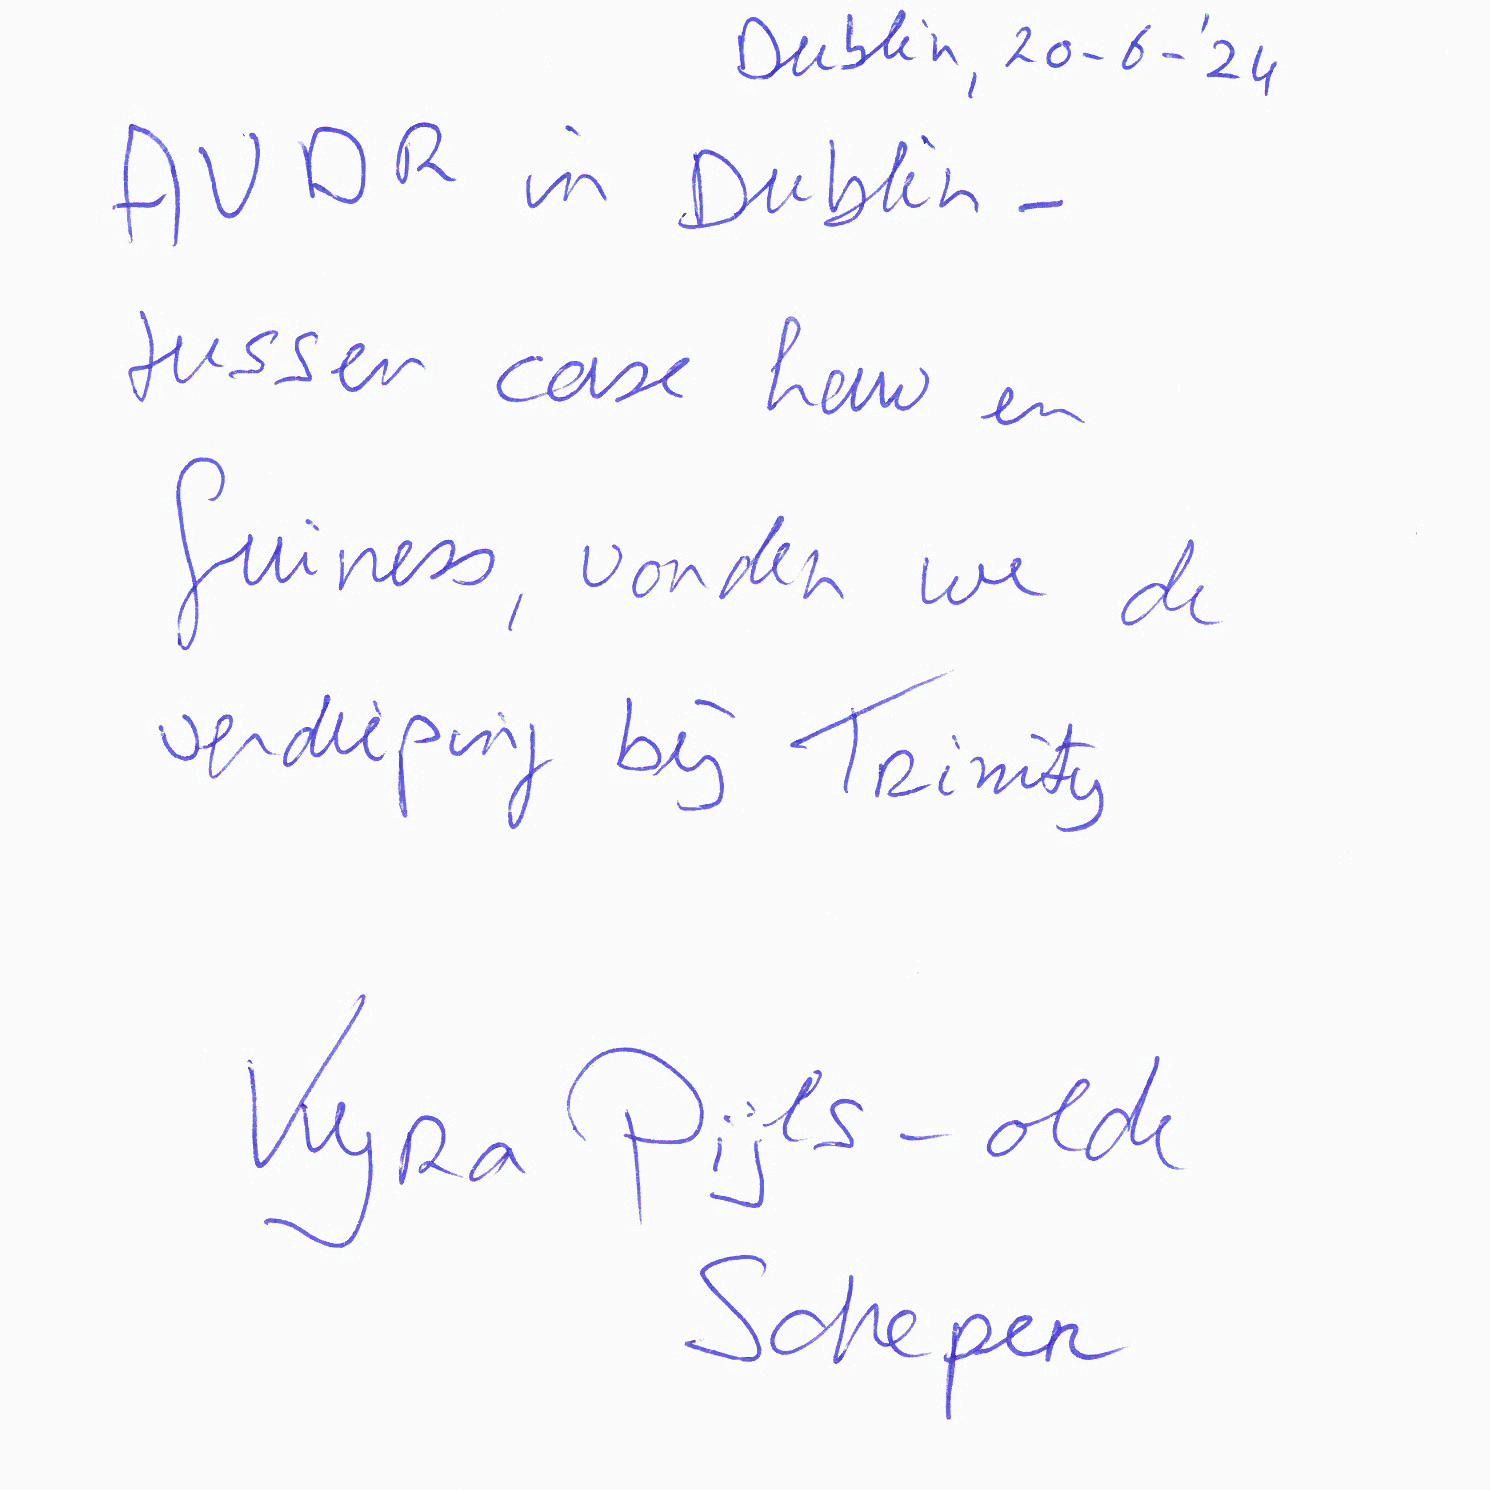 Dublin, 20-6-'24
AVDR in Dublin -
tussen case law en
Guiness, vonden we de
verdieping bij Trinity
Kyra Pijls - olde
Schepen